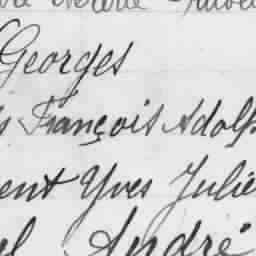 Georges
François Adolp
ent Yves Julie
André